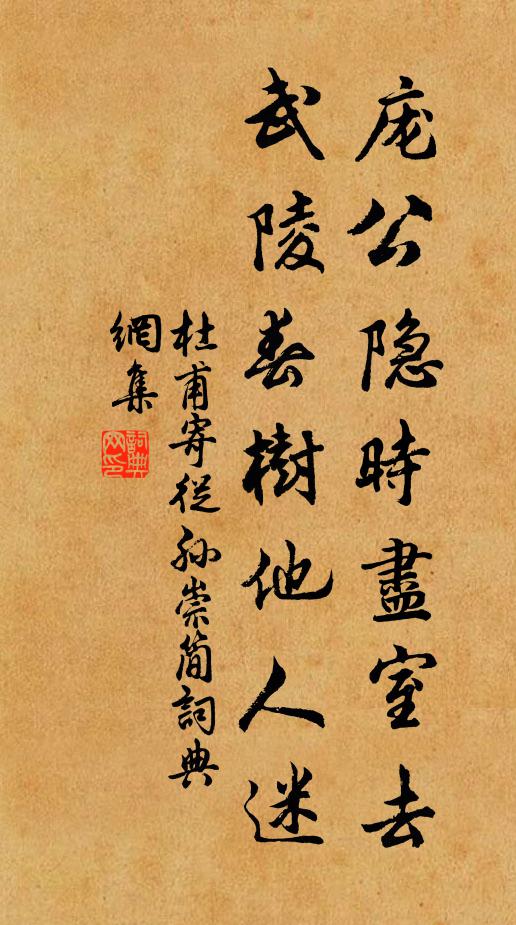 庞公隐時盡室去
武陵春樹他人迷
杜甫寄從孙崇简詞典
網集
詞典
网印